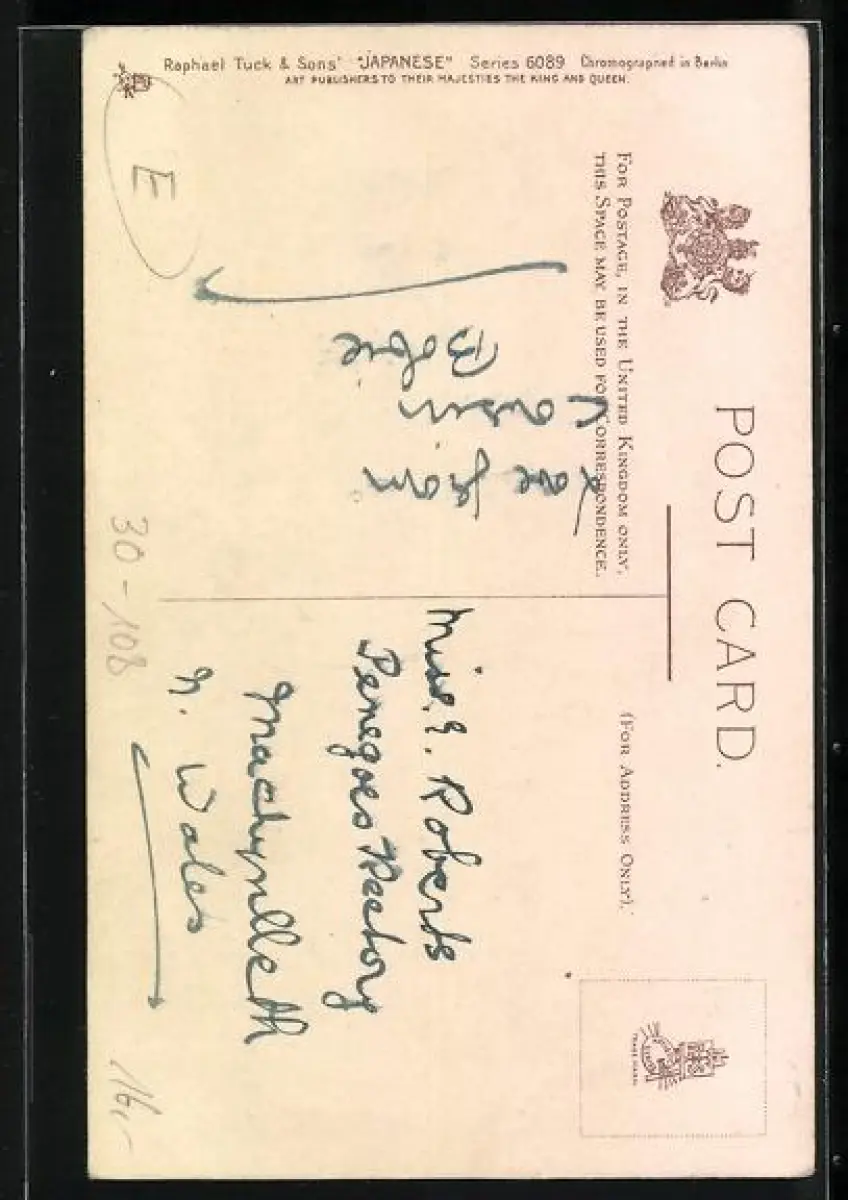 Raphael Tuck & Sons' "JAPANESE" Series 6089 Chromographed in Berlin
ART PUBLISHERS TO THEIR MAJESTIES THE KING AND QUEEN.
POST CARD.
FOR POSTAGE, IN THE UNITED KINGDOM ONLY,
THIS SPACE MAY BE USED FOR CORRESPONDENCE.
(FOR ADDRESS ONLY).
TRADE MARK
from
Cousin
Bobie
Miss. E. Roberts
Penegoes Rectory
Machynlleth
N. Wales
E
30-108
116,-